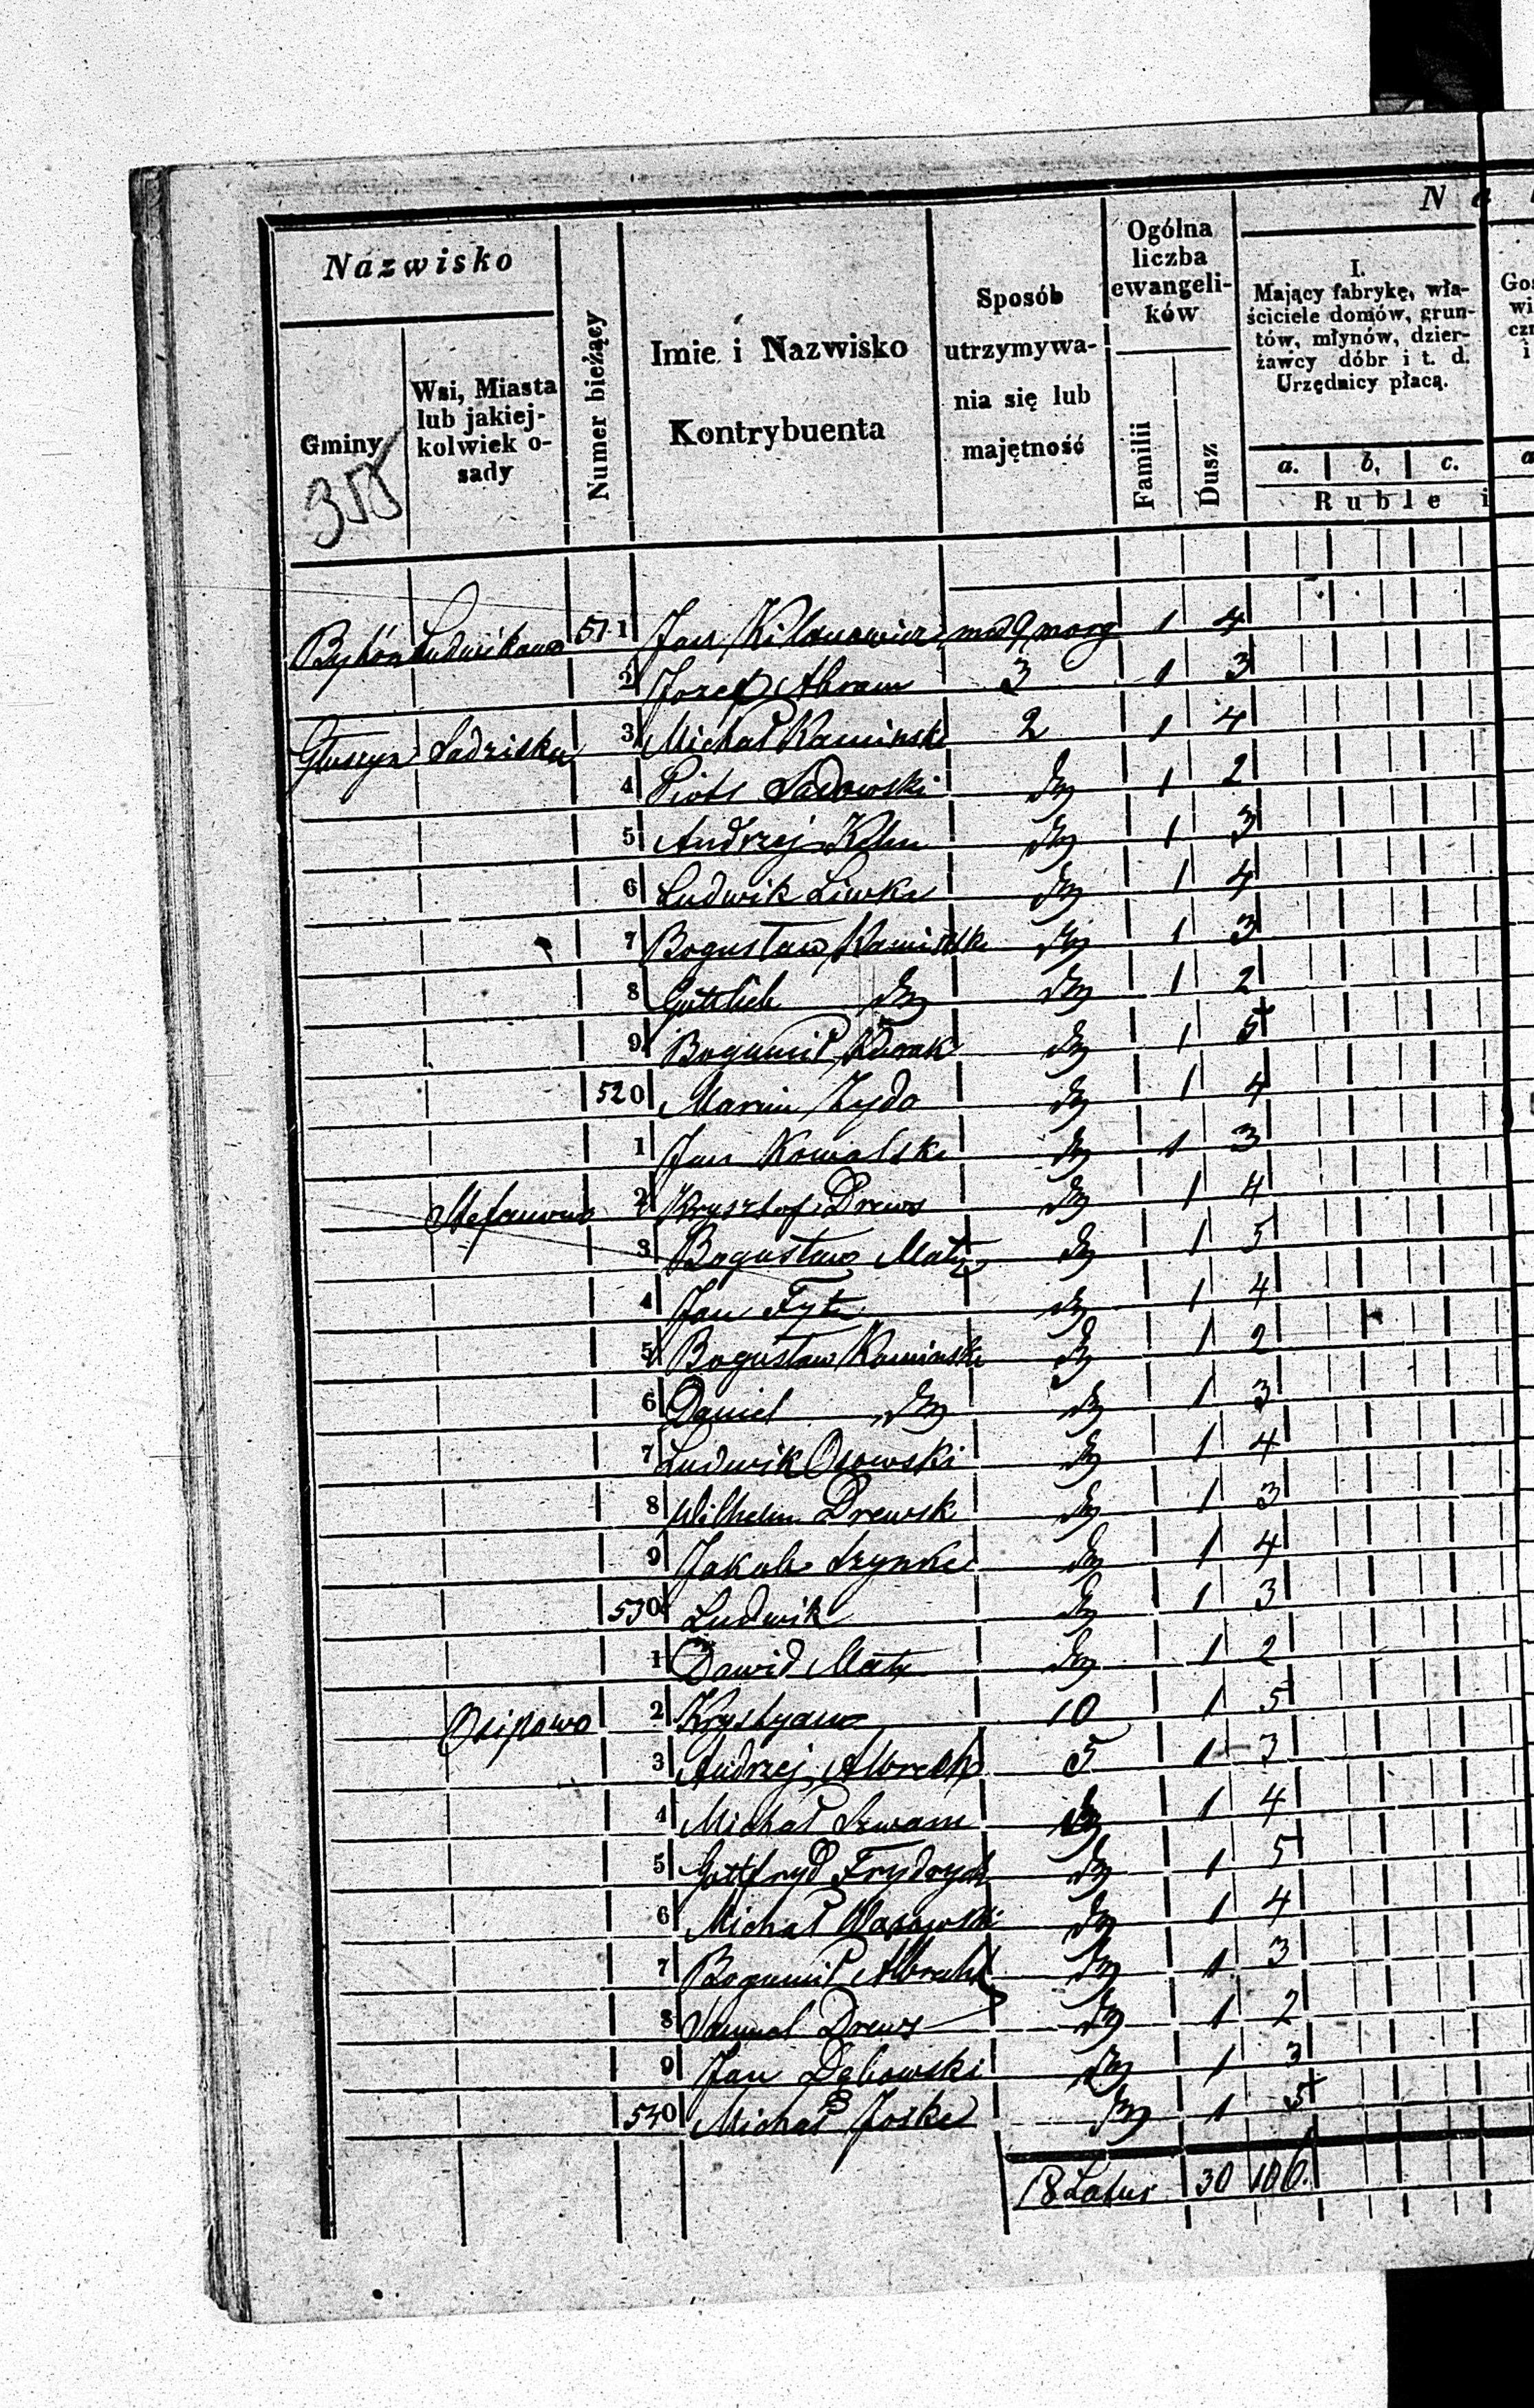 Nazwisko
Gminy
Wsi, Miasta
lub jakiej-
kolwiek o-
sady
Numer bieżący
Imie i Nazwisko
Kontrybuenta
Sposób
utrzymywa-
nia się lub
majętność
Ogólna
liczba
ewangeli-
ków
Familii
Dusz
N a
I.
Mający fabrykę, wła-
ściciele domów, grun-
tów, młynów, dzier-
żawcy dóbr i t. d.
Urzędnicy płacą.
a. b. c.
Ruble i
Bytoń Ludwikowo 511 Jan Kilanowicz 9 morg 1 4
2 Jozef Abram 3 1 3
Głuszyn Sadzisku 3 Michał Kaminski 2 1 4
4 Piotr Sadowski 1 2
5 Andrzej 1 3
6 Ludwik Liwka 1 4
7 Bogusław Kaminski 1 3
8 Gottlieb 1 2
9 Bogumił 1 5
520 Marcin Zydo 1 4
1 Jan Kowalski 1 3
Stefanowo 2 Krysztof Drews 1 4
3 Bogusław Matz 1 5
4 Jan 1 4
5 Bogusław Kaminski 1 2
6 Daniel 1 3
7 Ludwik Osowski 1 4
8 Wilhelm Drewsk 1 3
9 Jakub Szynke 1 4
530 Ludwik 1 3
1 Dawid Matz 1 2
Osipowo 2 Krystyan 10 1 5
3 Andrzej Albrecht 5 1 3
4 Michał Szwam 1 4
5 Gottfryd Frydrych 1 5
6 Michał 1 4
7 Bogumił Albrecht 1 3
8 Samuel Drews 1 2
9 Jan Dębowski 1 3
540 Michał Joske 1 5
18 Latus 30 106.